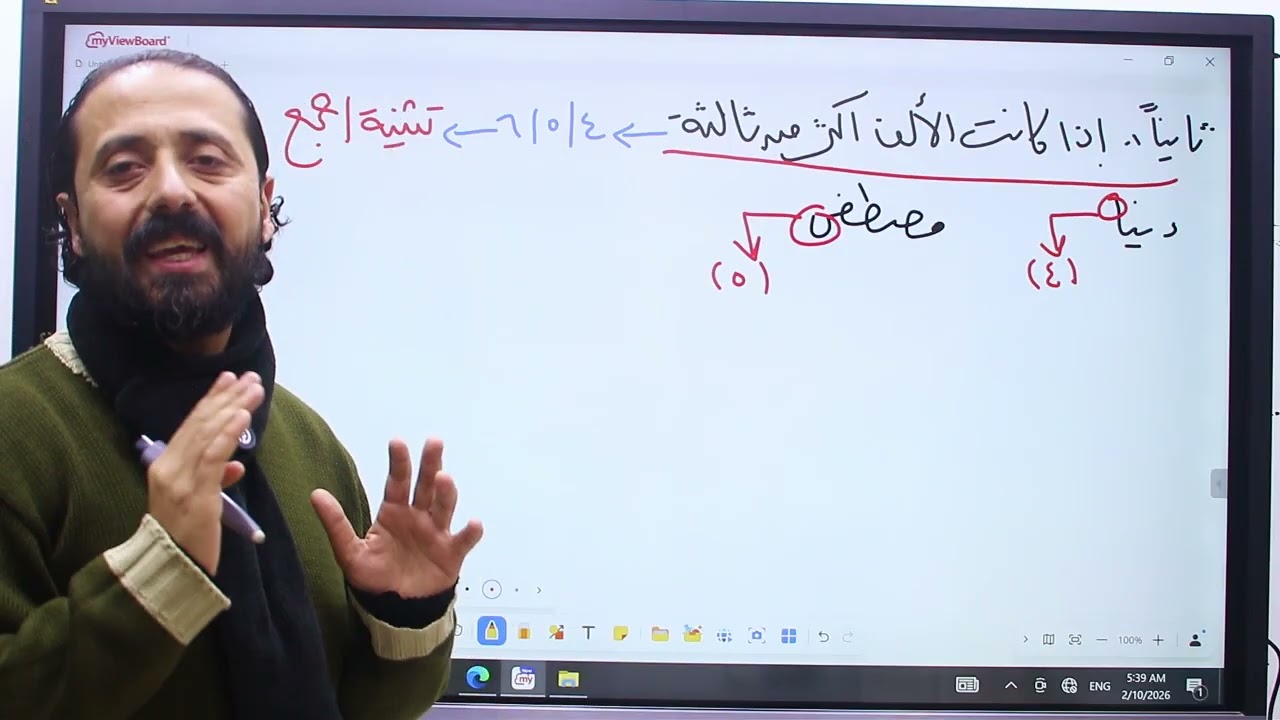 myViewBoard
ثانياً:. إذا كانت الألف أكثر من ثالثة ← ٤ | ٥ | ٦ ← تثنية | جمع
دنيا مصطفى
(٤) (٥)
T
100%
ENG
5:39 AM
2/10/2026
1